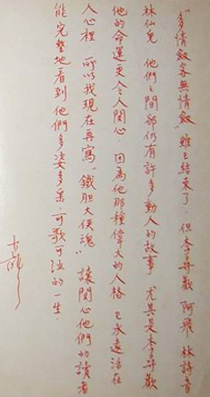 "多情劍客無情劍"雖已結束了，但李尋歡、阿飛、林詩音、
林仙兒，他們之間卻仍有許多動人的故事，尤其是李尋歡
他的命運更令人關心，因為他那種偉大的人格，已永遠活在
人心裡，所以我現在再寫"鐵胆大俠魂"，讓關心他們的讀者
能完整地看到他們多姿多采、可歌可泣的一生。
古龍